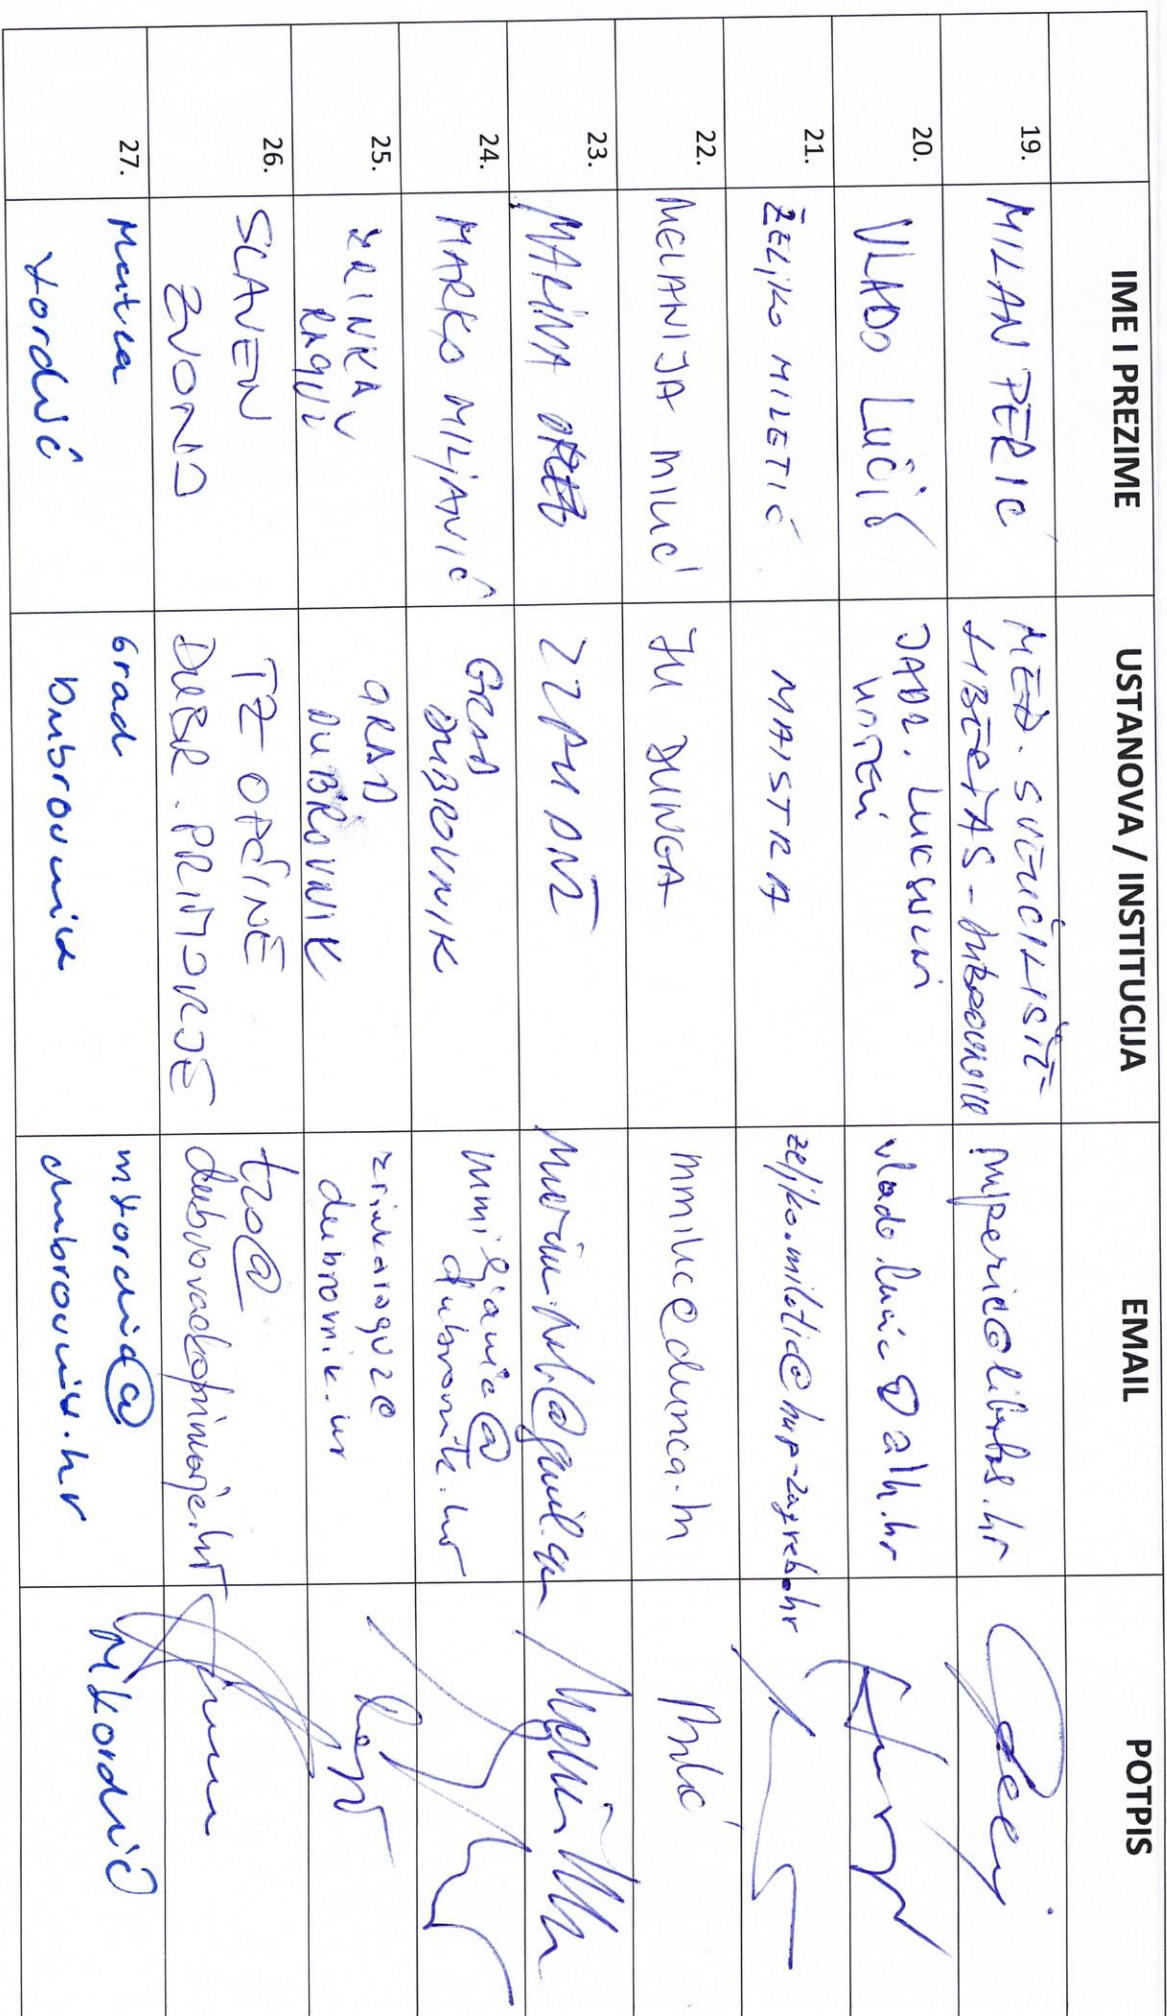 IME I PREZIME USTANOVA / INSTITUCIJA EMAIL POTPIS
19. MILAN PERIĆ MEĐ. SVEUČILIŠTE LIBERTAS - DUBROVNIK mperic@libertas.hr
20. VLADO LUČIĆ JADR. LUKSUZNI HOTELI vlado.lucic@alh.hr
21. ŽELJKO MILETIĆ MAISTRA zeljko.miletic@hup-zagreb.hr
22. MELANIJA MILIĆ JU DUNEA mmilic@dunea.hr Milić
23. MARINA ZZPUDNŽ
24. MARKO MILJANIĆ GRAD DUBROVNIK mmiljanic@
dubrovnik.hr
25. ZRINKA RAGUŽ GRAD DUBROVNIK zrinkaraguz@
dubrovnik.hr
26. SLAVEN ZVONO TZ OPĆINE DUBR. PRIMORJE tzo@
dubrovackoprimorje.hr
27. Marica Kordić Grad Dubrovnik mkordic@
dubrovnik.hr MKordić